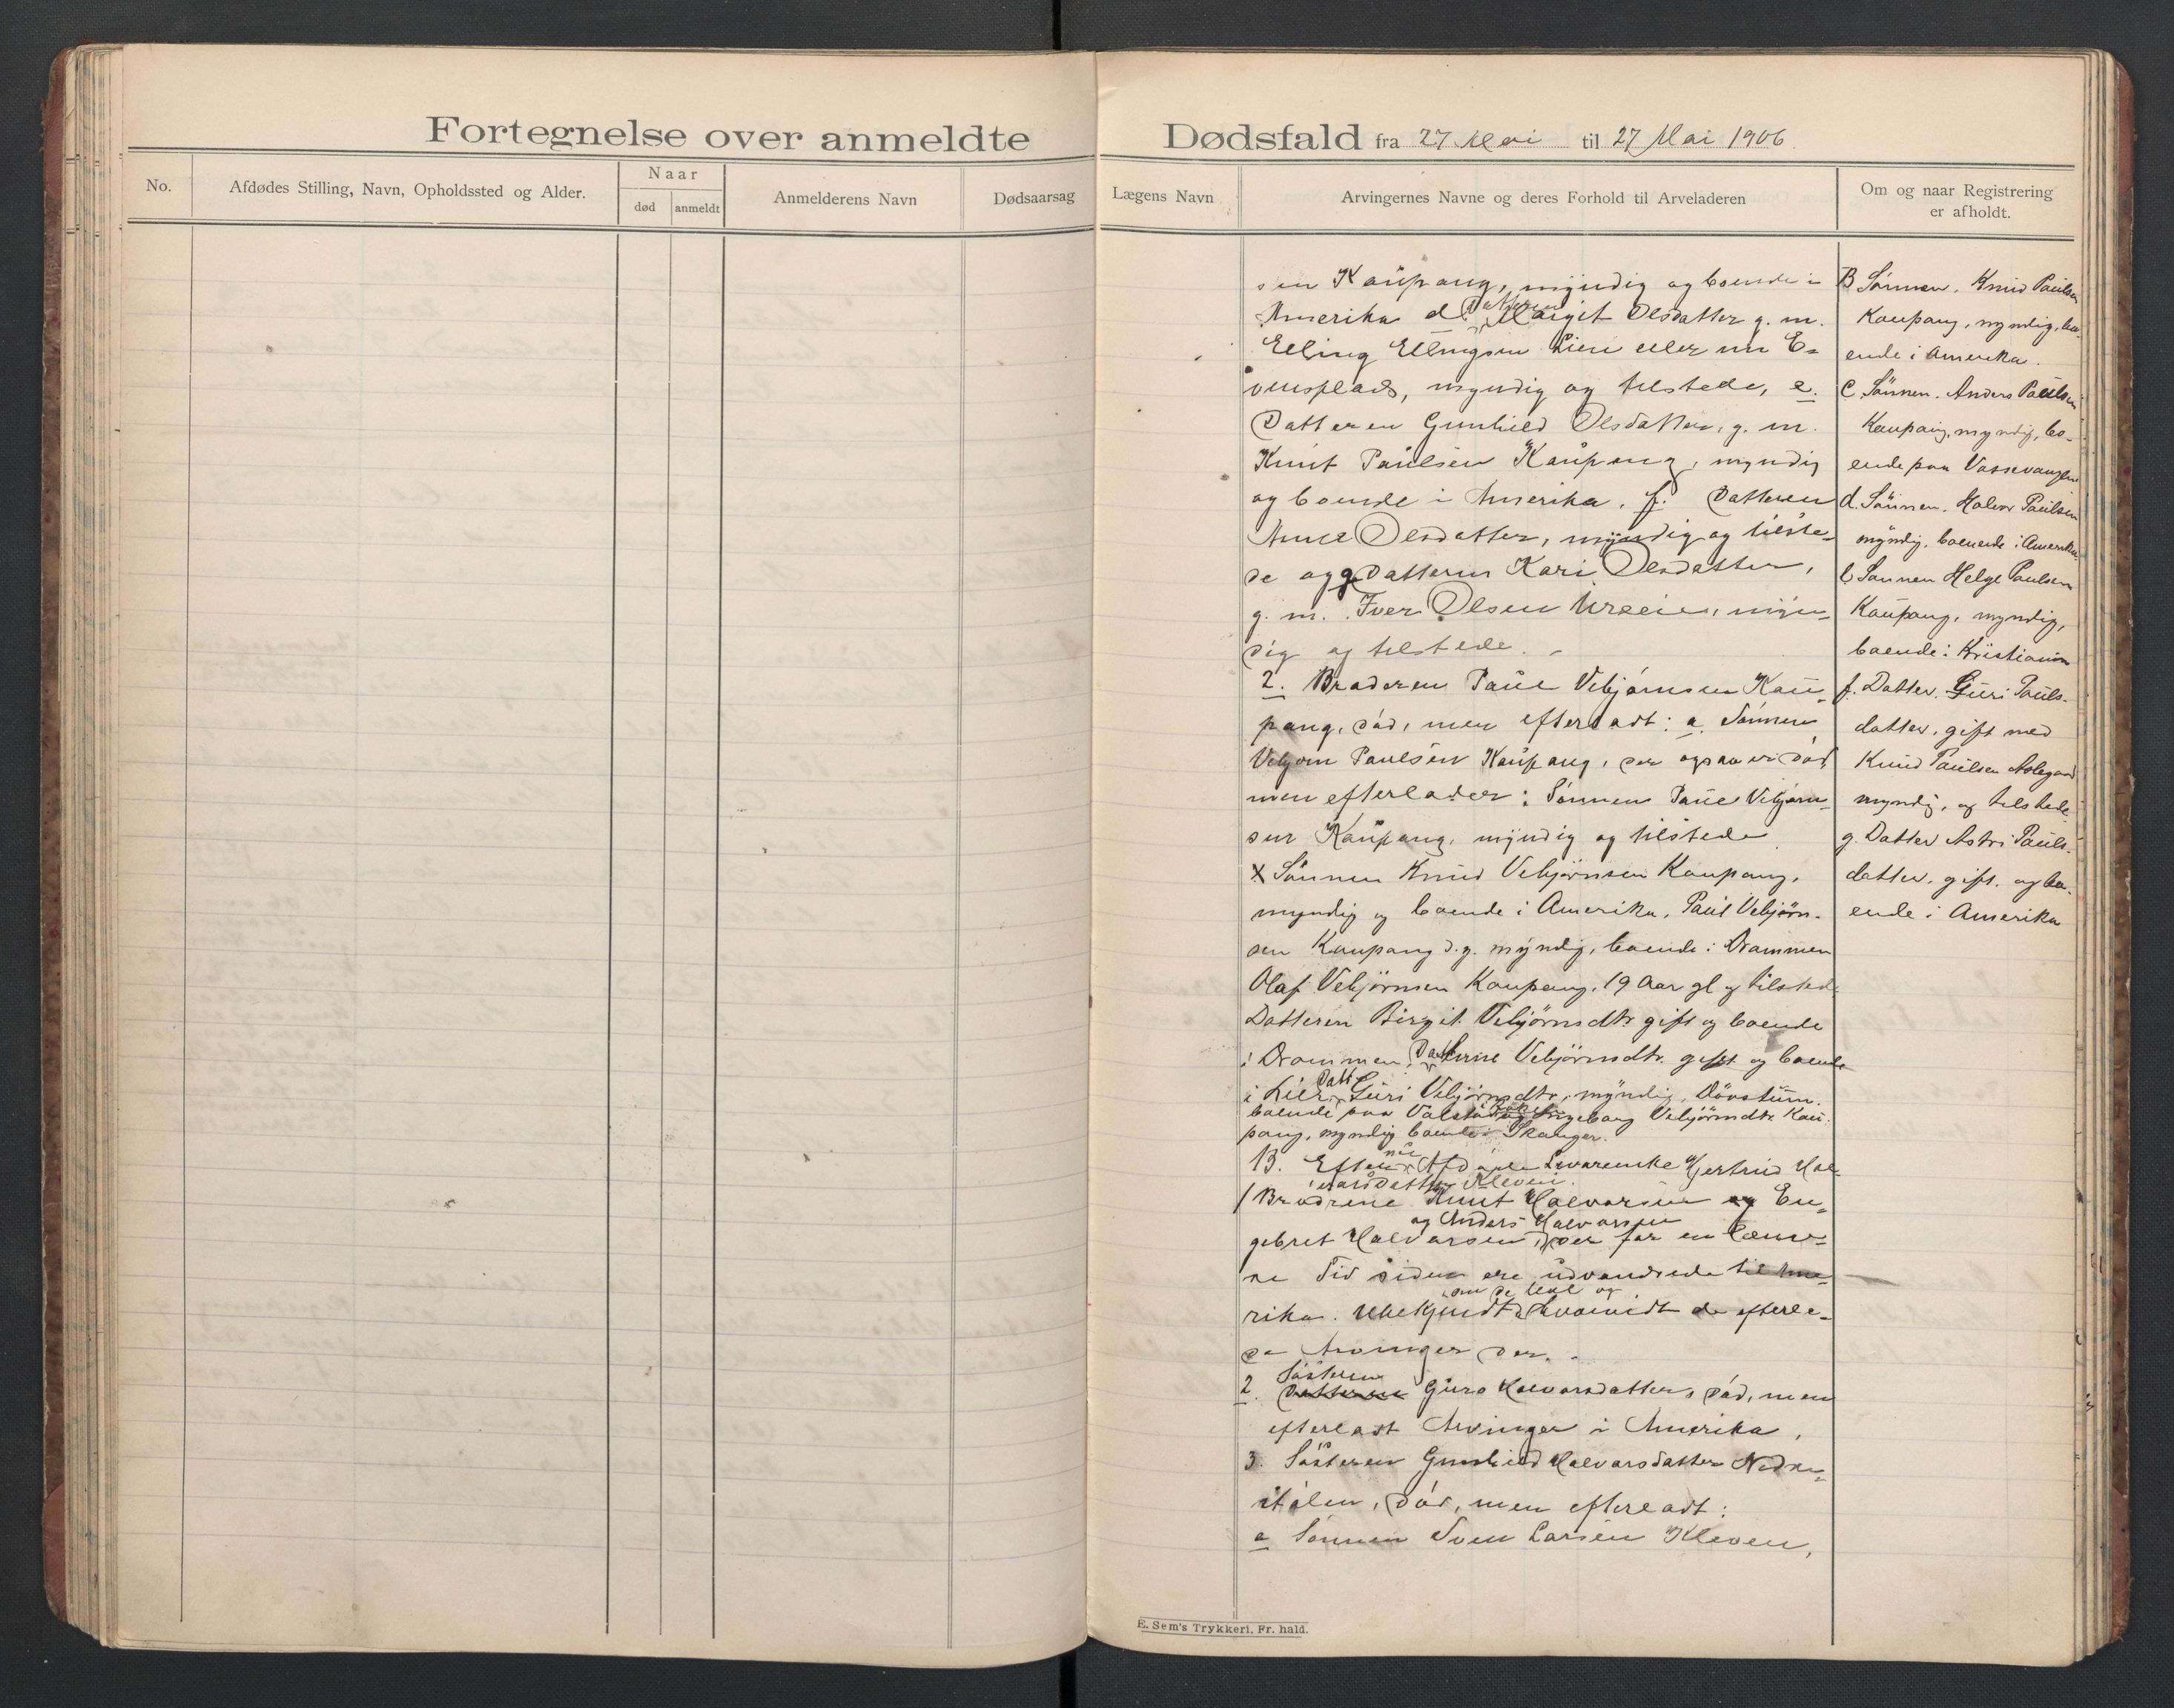 Fortegnelse over anmeldte Dødsfald fra 27 Mai til 27 Mai 1906
No.
Afdødes Stilling, Navn, Opholdssted og Alder.
Naar
død
anmeldt
Anmelderens Navn
Dødsaarsag
Lægens Navn
Arvingernes Navne og deres Forhold til Arveladeren
Om og naar Registrering
er afholdt.
sen Kaupang, myndig og boende i
Amerika d. Datteren Margit Olsdatter g. m.
Elling Ellingsen Lien eller nu E-
vensplads, myndig og tilstede, e.
Datteren Gunhild Olsdatter, g. m.
Knut Paulsen Kaupang, myndig
og boende i Amerika, f. Datteren
Anne Olsdatter, myndig og tilste-
de og g Datteren Kari Olsdatter,
g. m. Iver Olsen, myn-
dig og tilstede.
2. Broderen Paul Vebjørnsen Kau-
pang, død, men efterladt: a Sønnen
Vebjørn Paulsen Kaupang, der ogsaa er død,
men efterlader: Sønnen Paul Vebjørn-
sen Kaupang, myndig og tilstede
x Sønnen Knud Vebjørnsen Kaupang,
myndig og boende i Amerika, Paul Vebjørn-
sen Kaupang d.y. myndig, boende i Drammen
Olaf Vebjørnsen Kaupang, 19 Aar gl og tilstede
Datteren Birgit Vebjørnsdtr gift og boende
i Drammen, Datt Vebjørnsdtr. gift og boende
i Lier, Datt Guri Vebjørnsdtr, myndig, Døvstum.
boende paa og Ingeborg Vebjørnsdtr Kau-
pang, myndig boende i
B. Efter Afdøde Gjertrud Hal-
varsdatter Kleven.
1 Brødrene Knut Halvorsen og En-
gebret Halvorsen og Anders Halvorsen, der for en længe-
re Tid siden ere udvandrede til Ame-
rika. Ubekjendt om de leve og hvorvidt de efterla-
de Arvinger der.
2. Datteren Søsteren Guro Halvorsdatter, død, men
efterladt Arvinger i Amerika,
3. Søsteren Gunhild Halvorsdatter Nedre-
død, men efterladt:
a Sønnen Sven Larsen Kleven,
B Sønnen. Knud Paulsen
Kaupang, myndig, bo-
ende i Amerika.
C. Sønnen. Anders Paulsen
Kaupang, myndig, bo-
ende paa Vossevangen
d. Sønnen. Halvor Paulsen
myndig, boende i Amerika
e Sønnen Helge Paulsen
Kaupang, myndig,
boende i Kristiania
f. Datter. Guri Pauls-
datter, gift med
Knud Paulsen
myndig, og tilstede
g. Datter Astri Pauls-
datter, gift. og bo-
ende i Amerika
E. Sem's Trykkeri, Fr. hald.